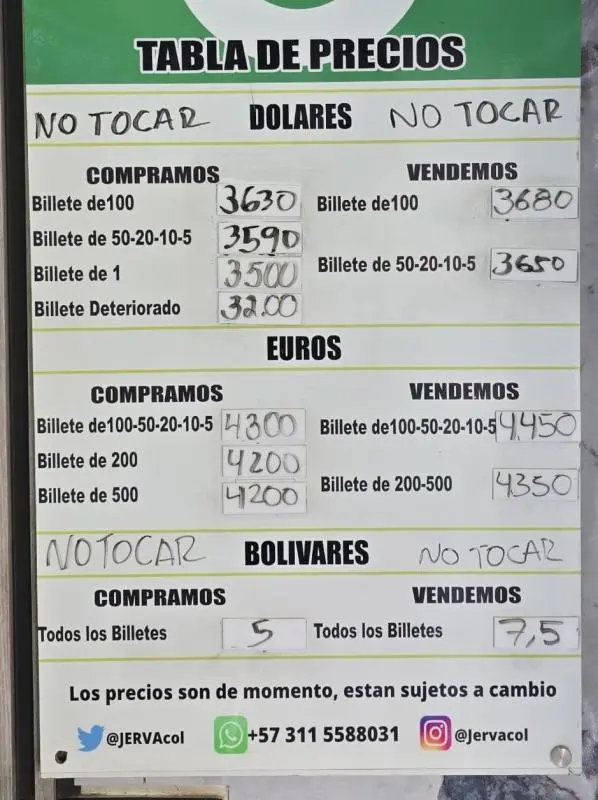 TABLA DE PRECIOS
NO TOCAR DOLARES NO TOCAR
COMPRAMOS VENDEMOS
Billete de100 3630 Billete de100 3680
Billete de 50-20-10-5 3590
Billete de 50-20-10-5 3650
Billete de 1 3500
Billete Deteriorado 3200
EUROS
COMPRAMOS VENDEMOS
Billete de100-50-20-10-5 4300 Billete de100-50-20-10-5 4450
Billete de 200 4200
Billete de 200-500 4350
Billete de 500 4200
NO TOCAR BOLIVARES NO TOCAR
COMPRAMOS VENDEMOS
Todos los Billetes 5 Todos los Billetes 7,5
Los precios son de momento, estan sujetos a cambio
@JERVAcol +57 311 5588031 @Jervacol